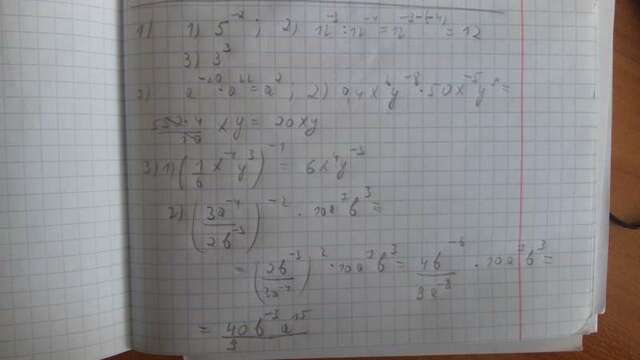 1) 1) 5⁻²; 2) 12⁻³ : 12⁻⁴ = 12⁻³⁻⁽⁻⁴⁾ = 12
3) 3³
2) a⁻¹⁰ · a¹² = a²; 2) 0,4x⁶y⁻⁸ · 50x⁻⁵y⁹ =
xy = 20xy
3) 1) (1/6 x⁻⁴y³)⁻¹ = 6x⁴y⁻³
2) (3a⁻⁴/2b⁻³)⁻² · 10a⁷b³ =
= (2b⁻³/3a⁻⁴)² · 10a⁷b³ = 4b⁻⁶/9a⁻⁸ · 10a⁷b³ =
= 40b⁻³a¹⁵/9